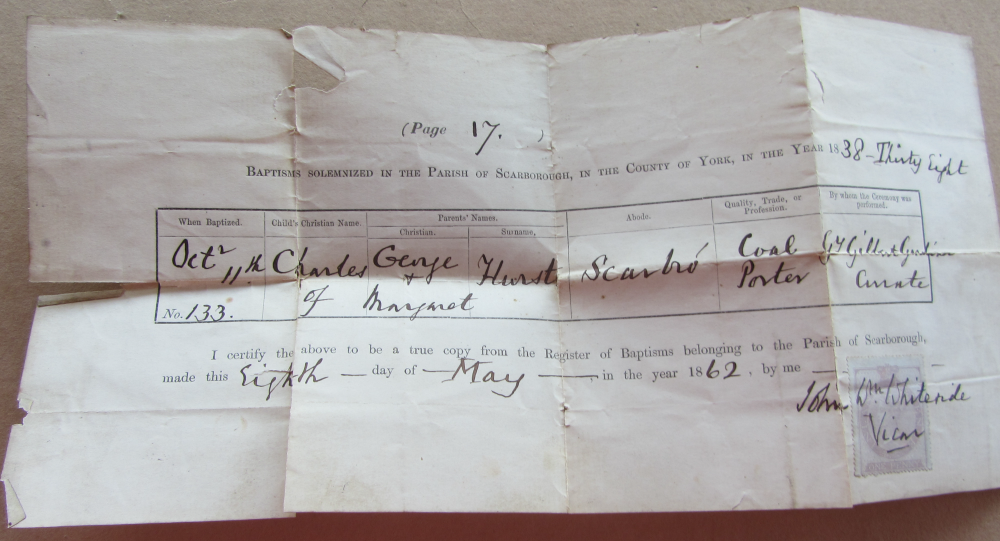 (Page 17. )
BAPTISMS SOLEMNIZED IN THE PARISH OF SCARBOROUGH, IN THE COUNTY OF YORK, IN THE YEAR 1838 - Thirty Eight
When Baptized. Child's Christian Name. Parents' Names. Abode. Quality, Trade, or Profession. By whom the Ceremony was performed.
Christian. Surname,
Octr 11th Charles George & Hurst Scarbro' Coal
of Margaret Porter Curate
No. 133.
I certify the above to be a true copy from the Register of Baptisms belonging to the Parish of Scarborough,
made this Eighth day of May , in the year 1862 , by me
John Wm Whiteside
Vicar